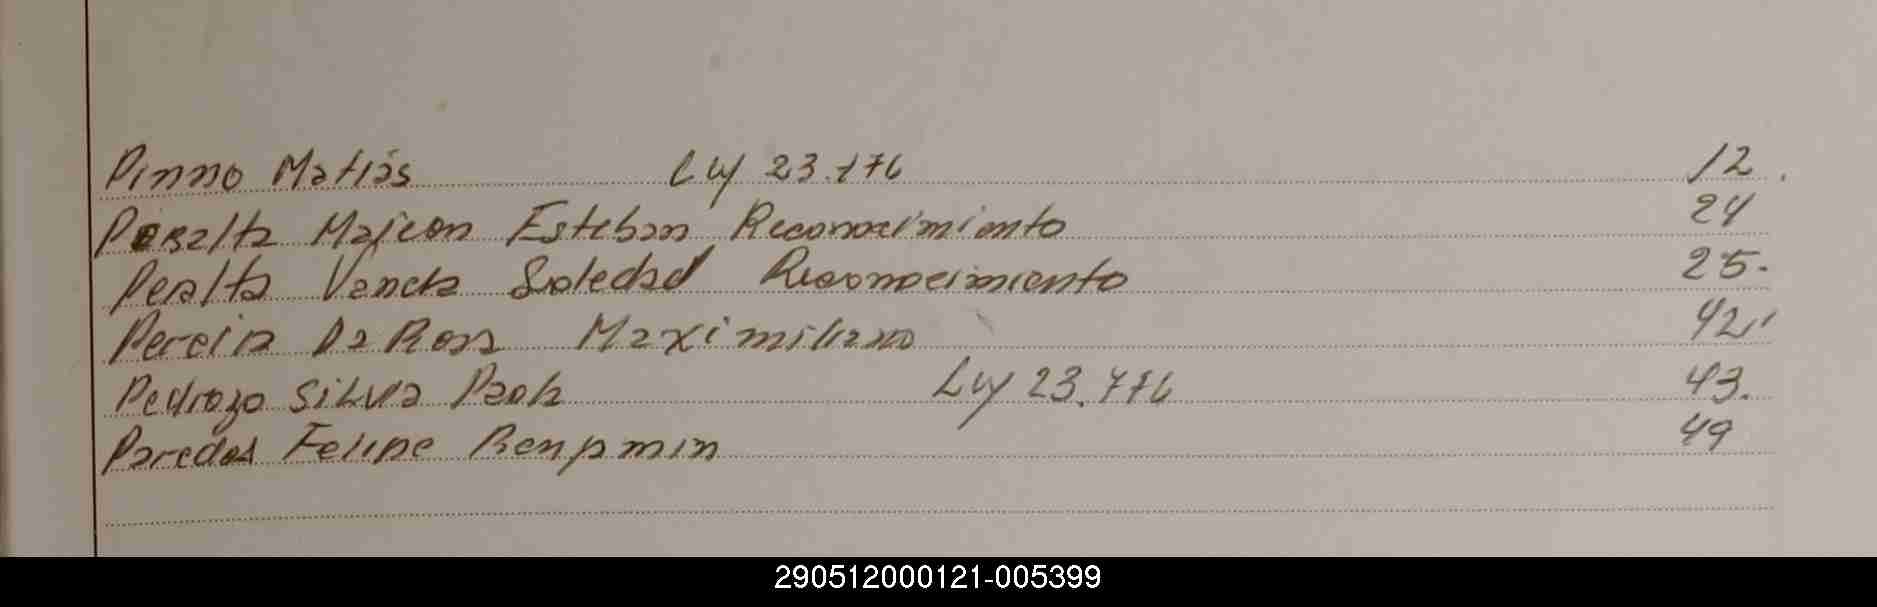 Pinno Matias Ley 23.776 12.
Peralta Maicon Esteban Reconocimiento 24
Peralta Soledad Reconocimiento 25.
Pereira Da Rosa Maximiliano 42
Pedrozo Silva Paola Ley 23.776 43.
Paredes Felipe Benjamin 49
290512000121-005399